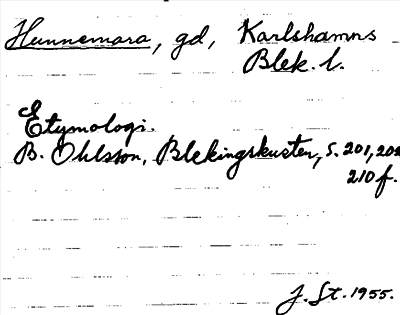 Hunnemara, gd, Karlshamns
Blek. l.
Etymologi.
B. Ohlsson, Blekingskusten, s. 201, 202
210 f.
J. St. 1955.